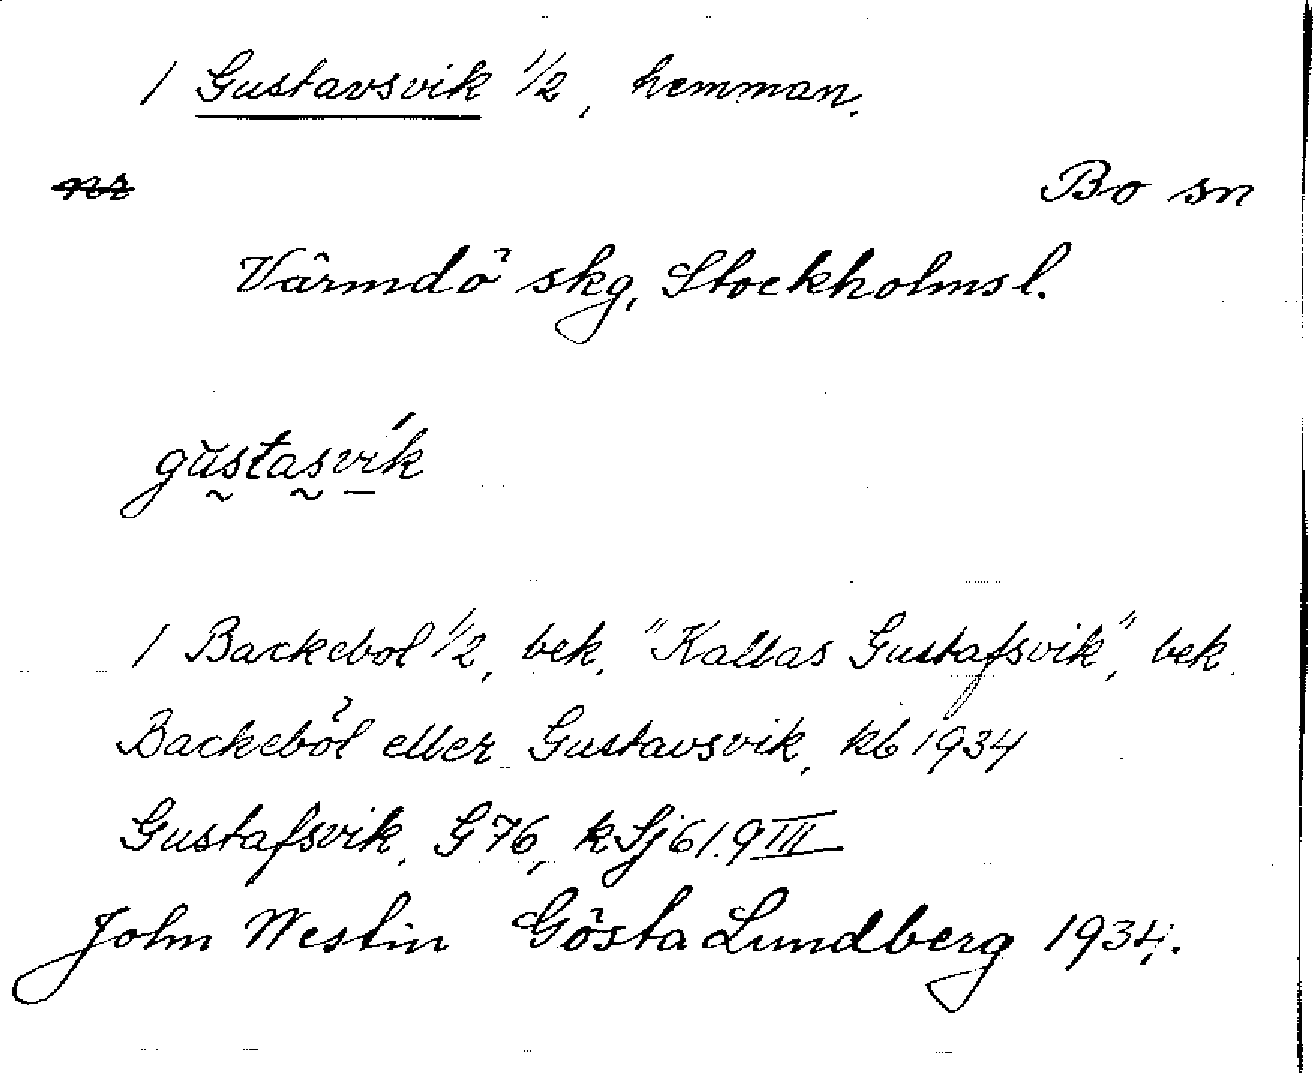 1 Gustavsvik 1/2, hemman.
nr
Bo sn
Värmdö skg, Stockholms l.
gustasvik
1 Backebol 1/2, bek. "Kallas Gustafsvik", bek.
Backeböl eller Gustavsvik, kb 1934
Gustafsvik, G 76, k Sj 61.9 III
John Westin Gösta Lundberg 1934.